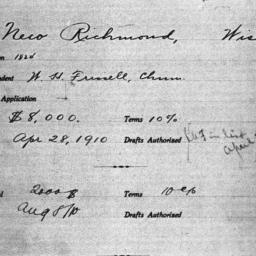 New Richmond, Wis
on 1820
dent W H Frissell, Chmn.
Application
$8,000. Terms 10%.
Apr 28, 1910 Drafts Authorized
April
d 2000$ Terms 10 c/o
Aug 8/10 Drafts Authorized